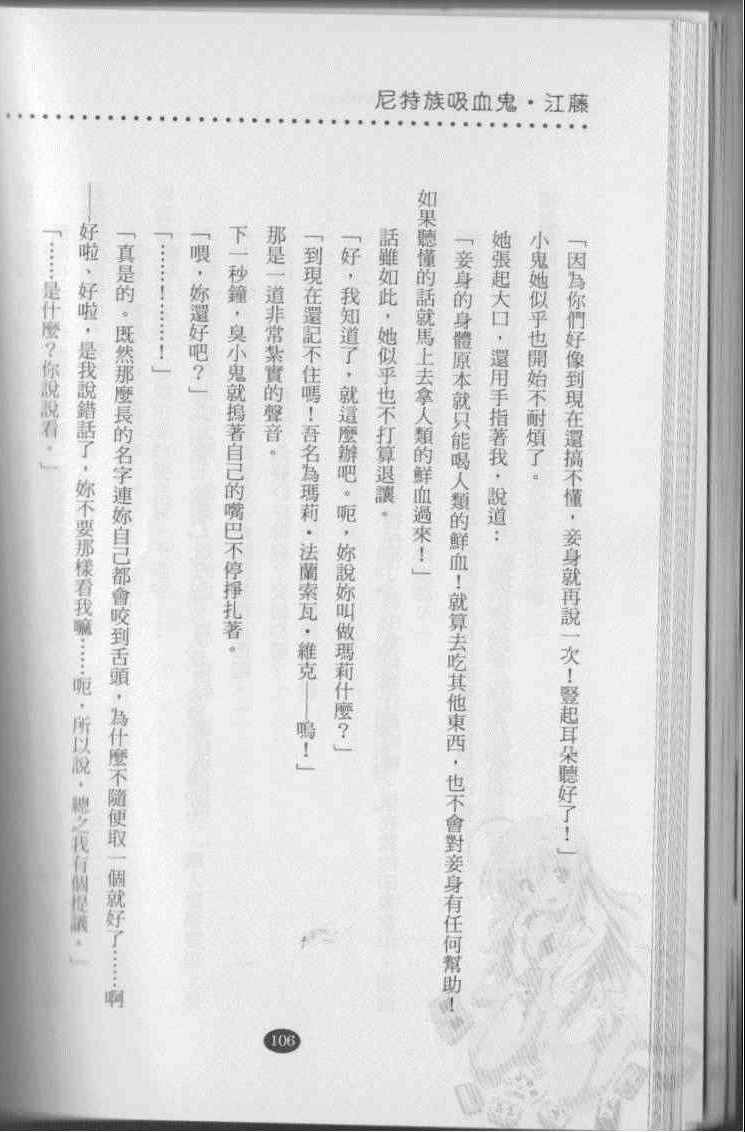 尼特族吸血鬼・江藤
「因為你們好像到現在還搞不懂，妾身就再說一次！豎起耳朵聽好了！」
小鬼她似乎也開始不耐煩了。
她張起大口，還用手指著我，說道：
「妾身的身體原本就只能喝人類的鮮血！就算去吃其他東西，也不會對妾身有任何幫助！
如果聽懂的話就馬上去拿人類的鮮血過來！」
話雖如此，她似乎也不打算退讓。
「好，我知道了，就這麼辦吧。呃，妳說妳叫做瑪莉什麼？」
「到現在還記不住嗎！吾名為瑪莉・法蘭索瓦・維克——嗚！」
那是一道非常紮實的聲音。
下一秒鐘，臭小鬼就摀著自己的嘴巴不停掙扎著。
「喂，妳還好吧？」
「……！……！」
「真是的。既然那麼長的名字連妳自己都會咬到舌頭，為什麼不隨便取一個就好了……啊
——好啦、好啦，是我說錯話了，妳不要那樣看我嘛……呃，所以說，總之我有個提議。」
「……是什麼？你說說看。」
106